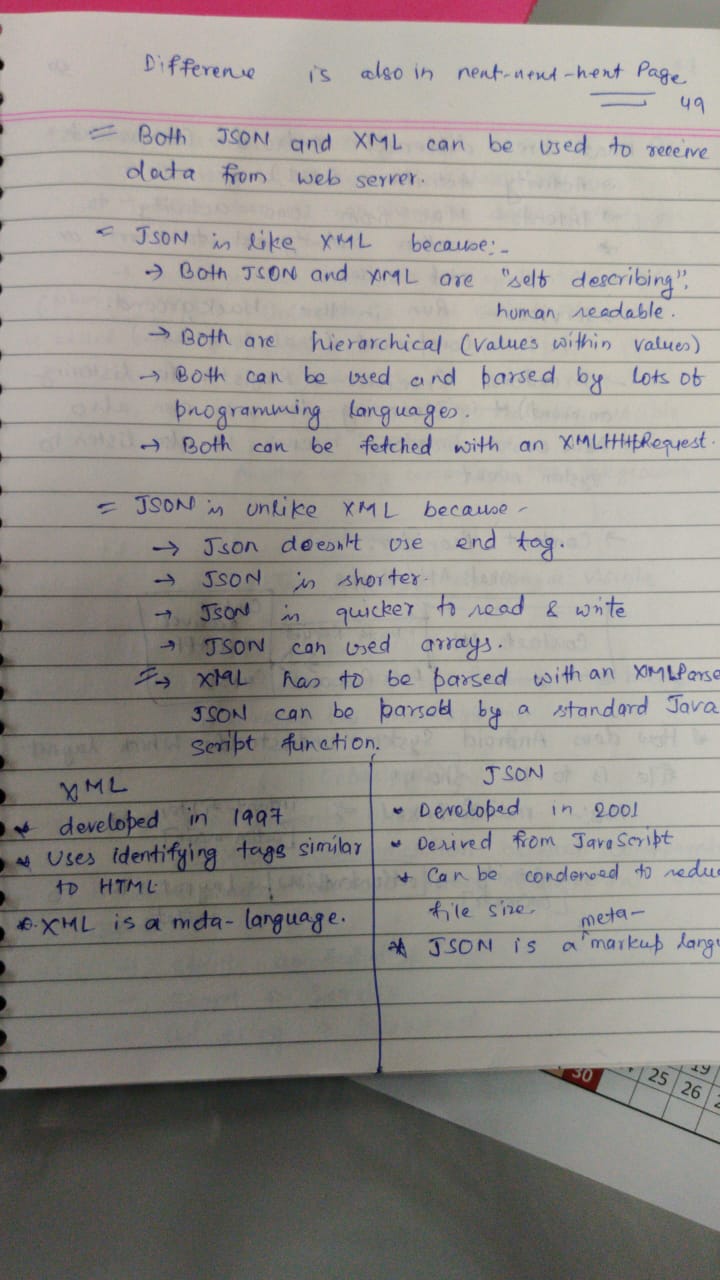 Difference is also in next-next-next Page
49
= Both JSON and XML can be used to receive
data from web server.
= JSON is like XML because:-
→ Both JSON and XML are "self describing",
human readable.
→ Both are hierarchical (values within values)
→ Both can be used and parsed by lots of
programming languages.
→ Both can be fetched with an XMLHttpRequest.
= JSON is unlike XML because -
→ Json doesn't use end tag.
→ JSON is shorter.
→ JSON is quicker to read & write
→ JSON can used arrays.
→ XML has to be parsed with an XMLParse
JSON can be parsed by a standard Java
Script function.
XML
* developed in 1997
* Uses identifying tags similar
to HTML
* XML is a meta-language.
JSON
* Developed in 2001
* Derived from JavaScript
* Can be condensed to redu
file size.
meta-
* JSON is a ^markup lang
30 25 26
19